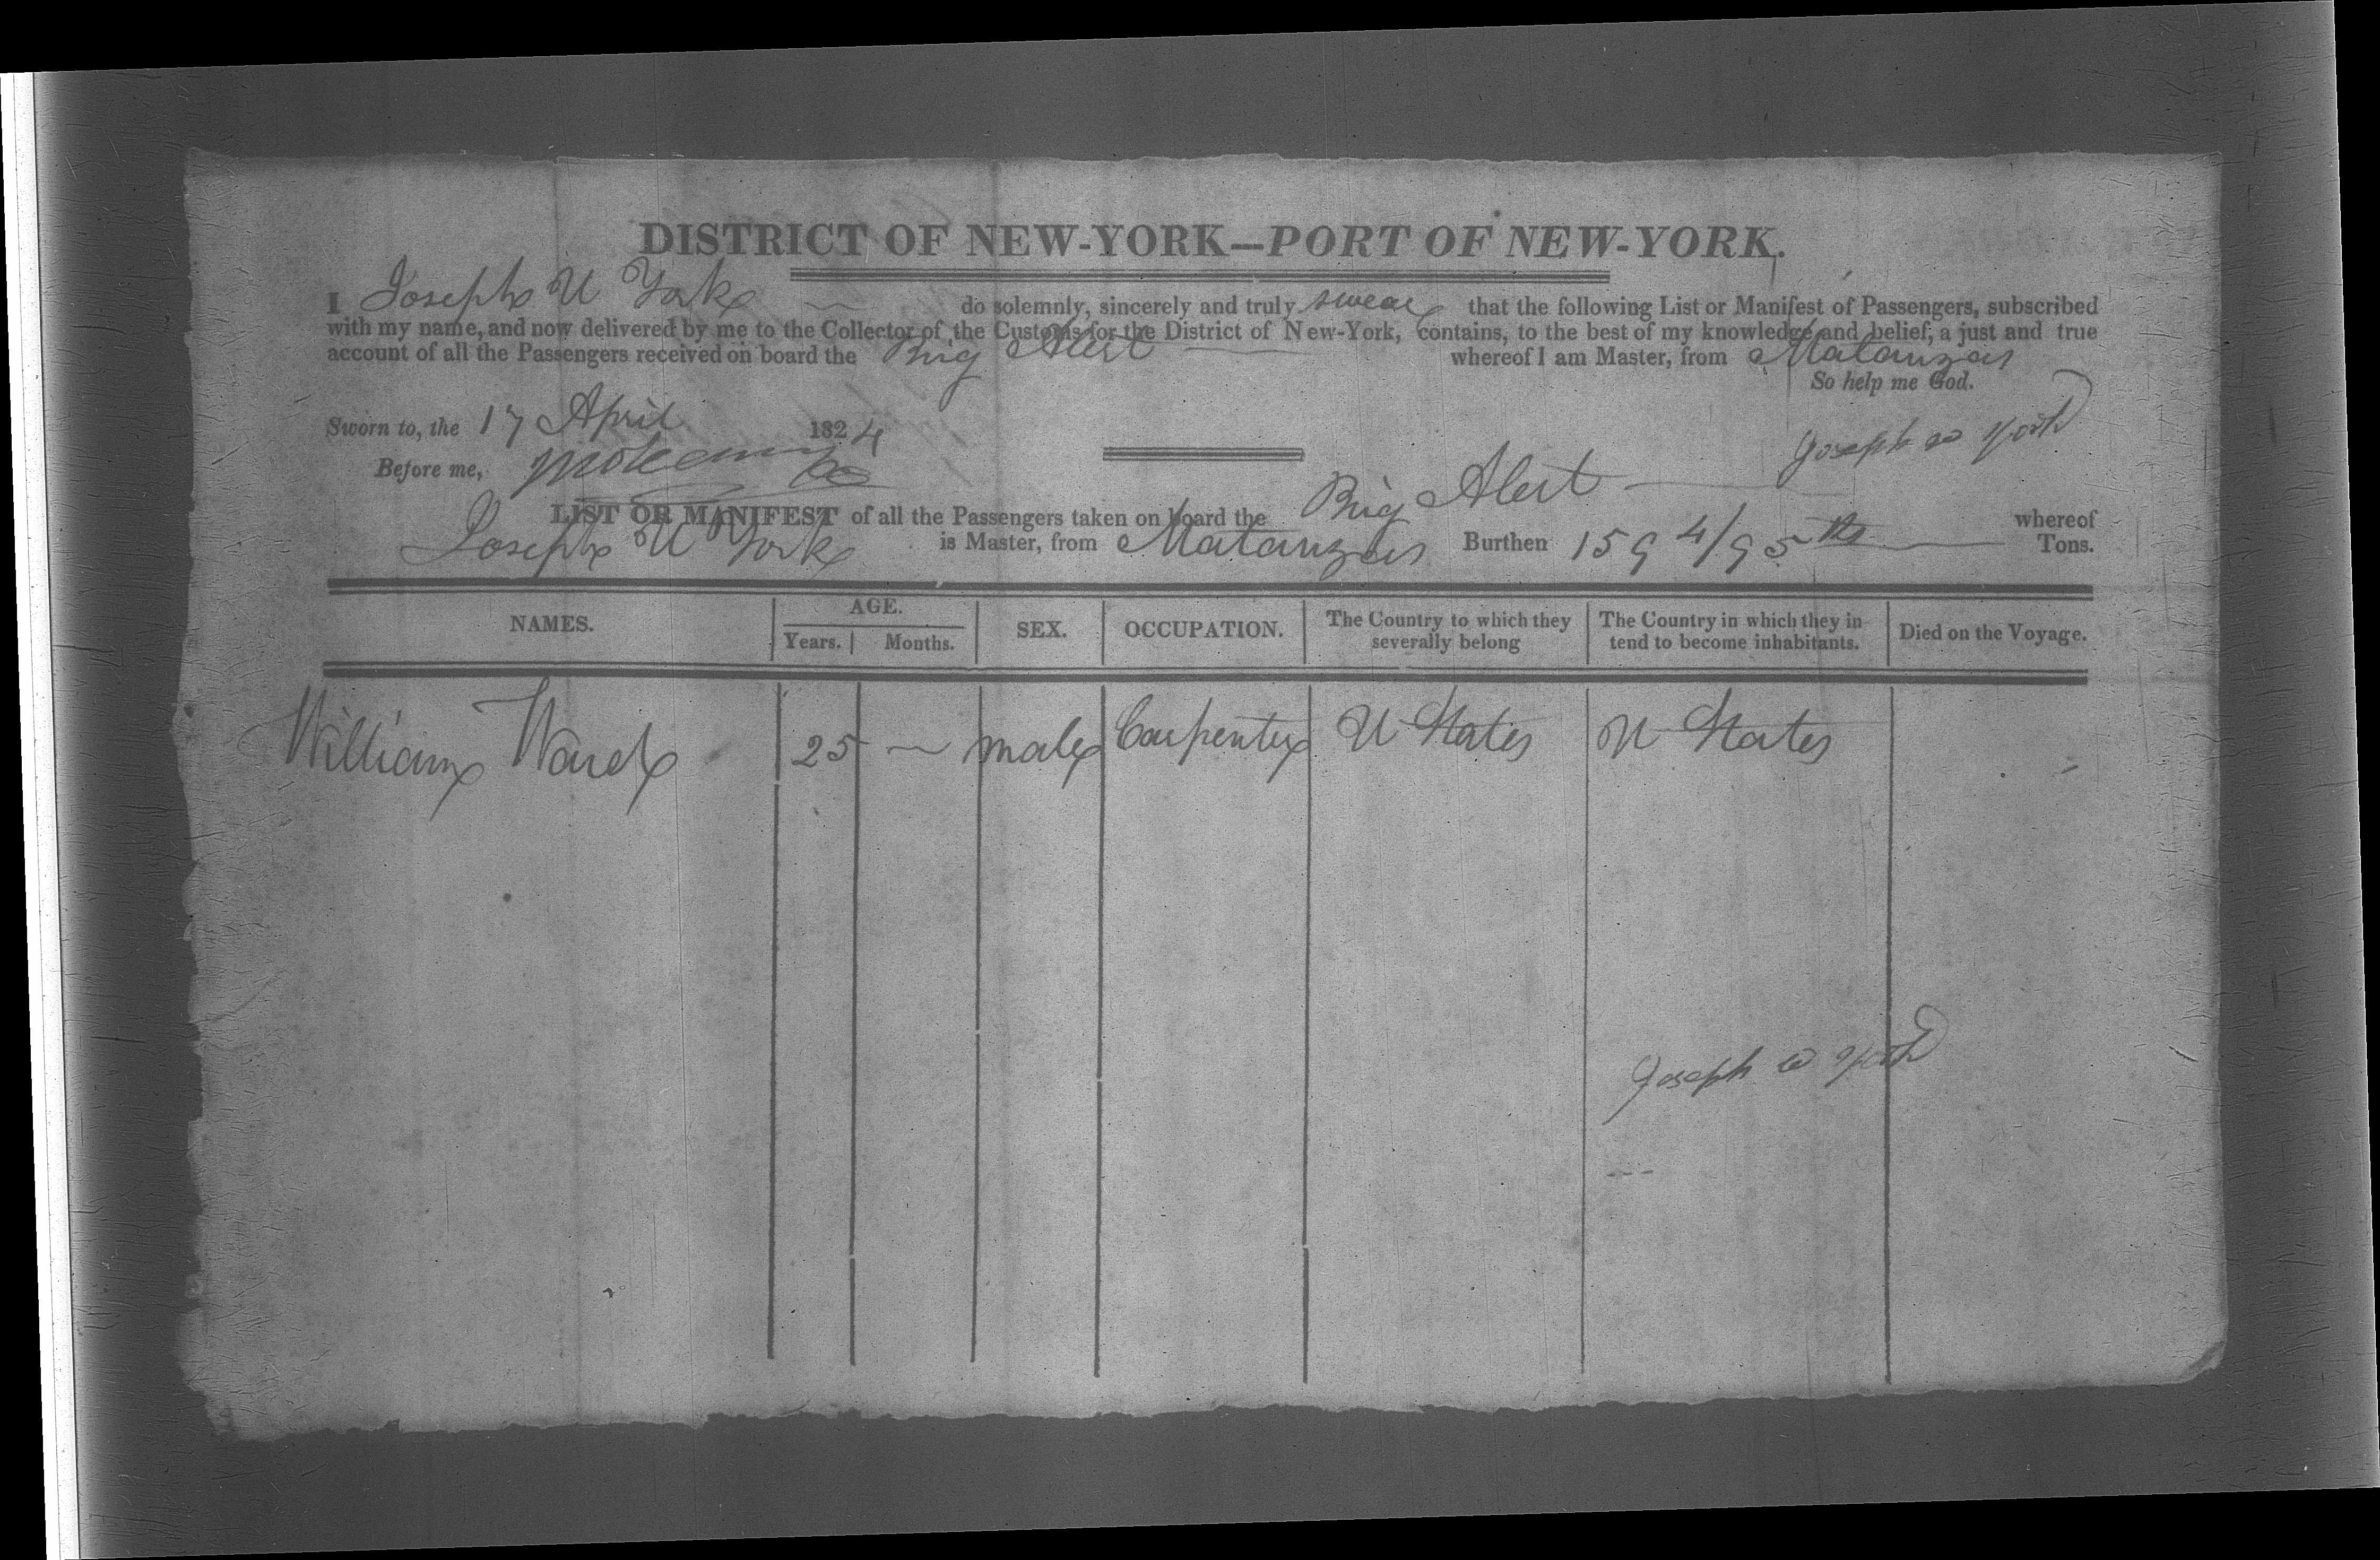 DISTRICT OF NEW-YORK—PORT OF NEW-YORK.
I Joseph W York do solemnly, sincerely and truly swear that the following List or Manifest of Passengers, subscribed
with my name, and now delivered by me to the Collector of the Customs for the District of New-York, contains, to the best of my knowledge and belief, a just and true
account of all the Passengers received on board the Brig Alert whereof I am Master, from Matanzas
So help me God.
Sworn to, the 17 April 1824
Joseph W York
Before me,
LIST OR MANIFEST of all the Passengers taken on board the Brig Alert whereof
Joseph W York is Master, from Matanzas Burthen 159 4/95 ths Tons.
NAMES. AGE. Years. Months. SEX. OCCUPATION. The Country to which they severally belong The Country in which they in tend to become inhabitants. Died on the Voyage.
William Ward 25 — male Carpenter U States U States
Joseph W York